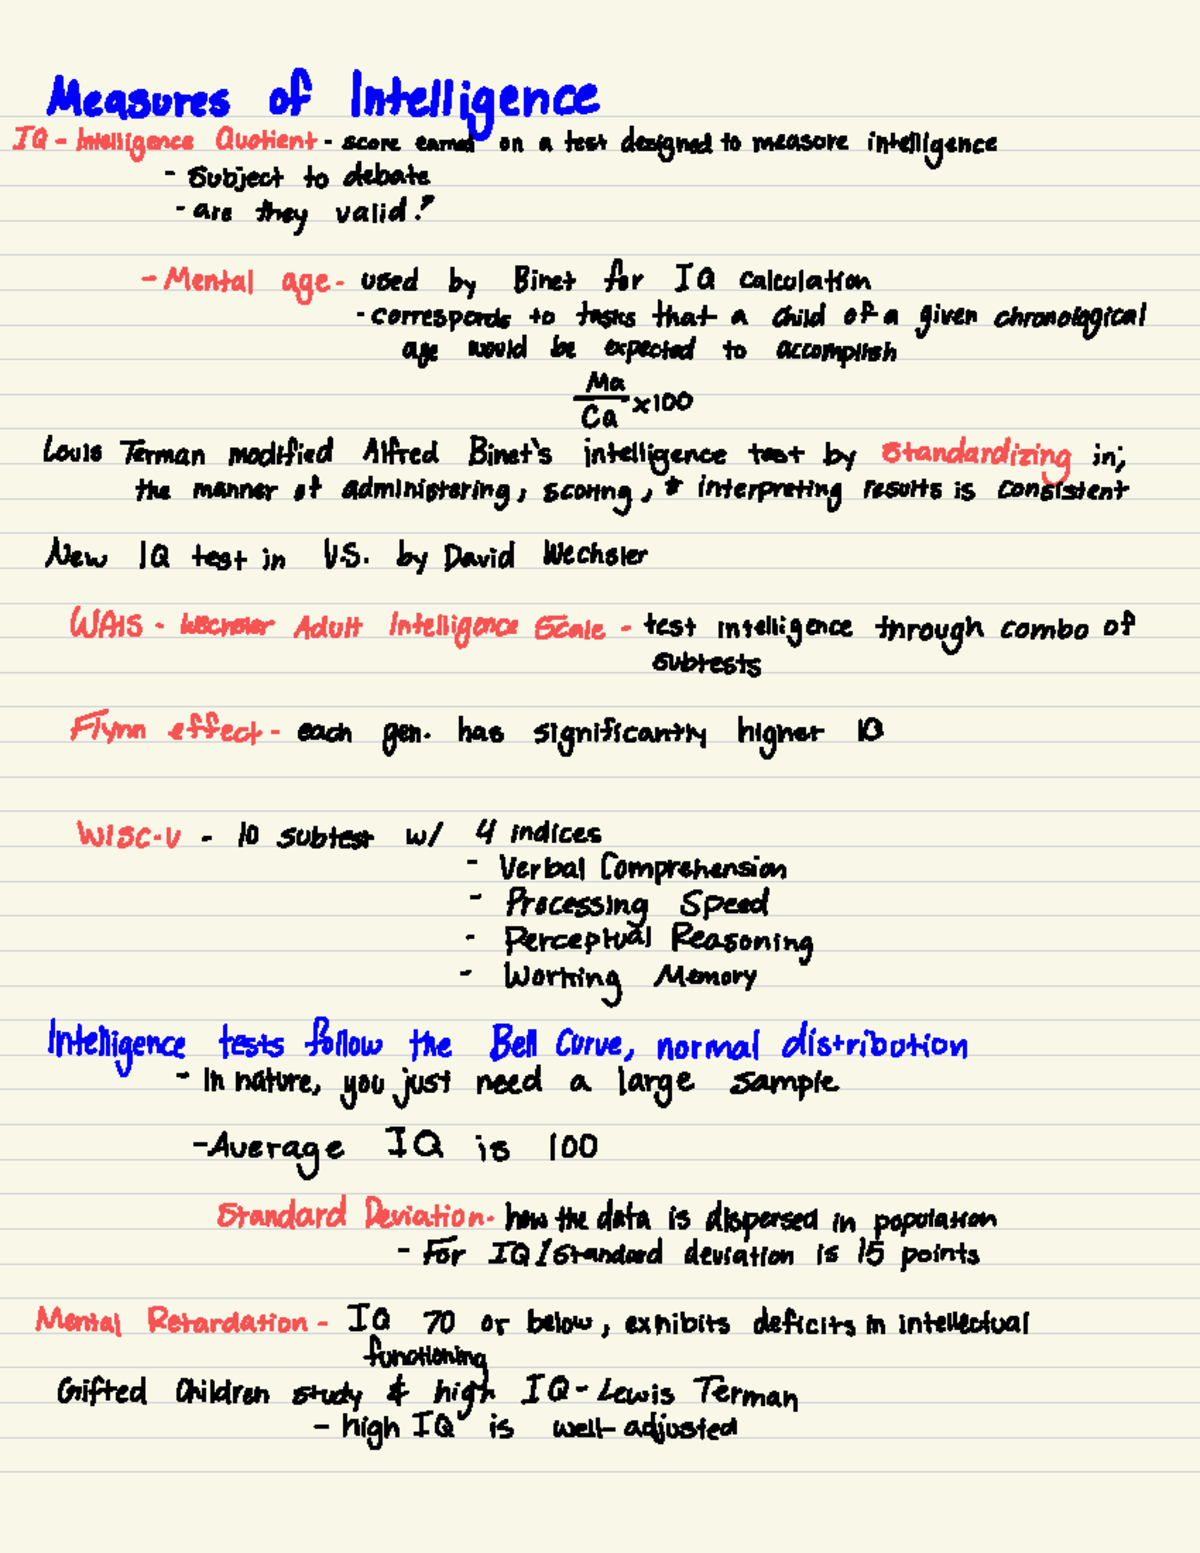 Measures of Intelligence
IQ - Intelligence Quotient - score earned on a test designed to measure intelligence
- Subject to debate
- are they valid?
- Mental age - used by Binet for IQ calculation
- corresponds to tasks that a child of a given chronological
age would be expected to accomplish
Ma
Ca x100
Louis Terman modified Alfred Binet's intelligence test by standardizing in;
the manner of administering, scoring, + interpreting results is consistent
New IQ test in U.S. by David Wechsler
WAIS - Wechsler Adult Intelligence Scale - test intelligence through combo of
subtests
Flynn effect - each gen. has significantly higher IQ
WISC-V - 10 subtest w/ 4 indices
- Verbal Comprehension
- Processing Speed
- Perceptual Reasoning
- Working Memory
Intelligence tests follow the Bell Curve, normal distribution
- In nature, you just need a large sample
- Average IQ is 100
Standard Deviation - how the data is dispersed in population
- For IQ / Standard deviation is 15 points
Mental Retardation - IQ 70 or below, exhibits deficits in intellectual
functioning
Gifted Children study & high IQ - Lewis Terman
- high IQ is well-adjusted